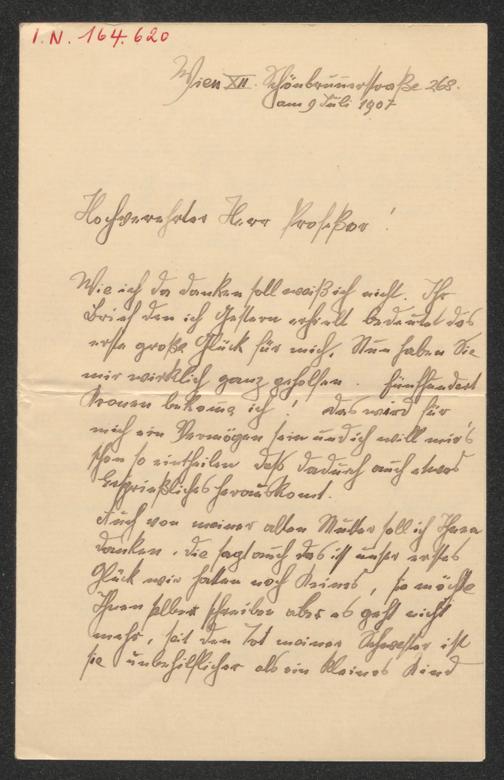 I.N. 164.620
Wien XII. Schönbrunnerstraße 268.
am 9 Juli 1907
Hochverehrter Herr Profeßor!
Wie ich da danken soll weiß ich nicht. Ihr
Brief den ich Gestern erhielt bedeutet das
erste große Glück für mich. Nun haben Sie
mir wirklich ganz geholfen. Fünfhundert
Kronen bekome ich! Das wird für
mich ein Vermögen sein und ich will mir's
schon so eintheilen daß dadurch auch etwas
Ersprießliches herauskomt.
Auch von meiner alten Mutter soll ich Ihnen
danken. Die sagt auch das ist unser erstes
Glück wir hatten noch keines, sie möchte
Ihnen selber schreiben aber es geht nicht
mehr, seit den Tot meiner Schwester ist
sie unbehilflicher als ein kleines Kind